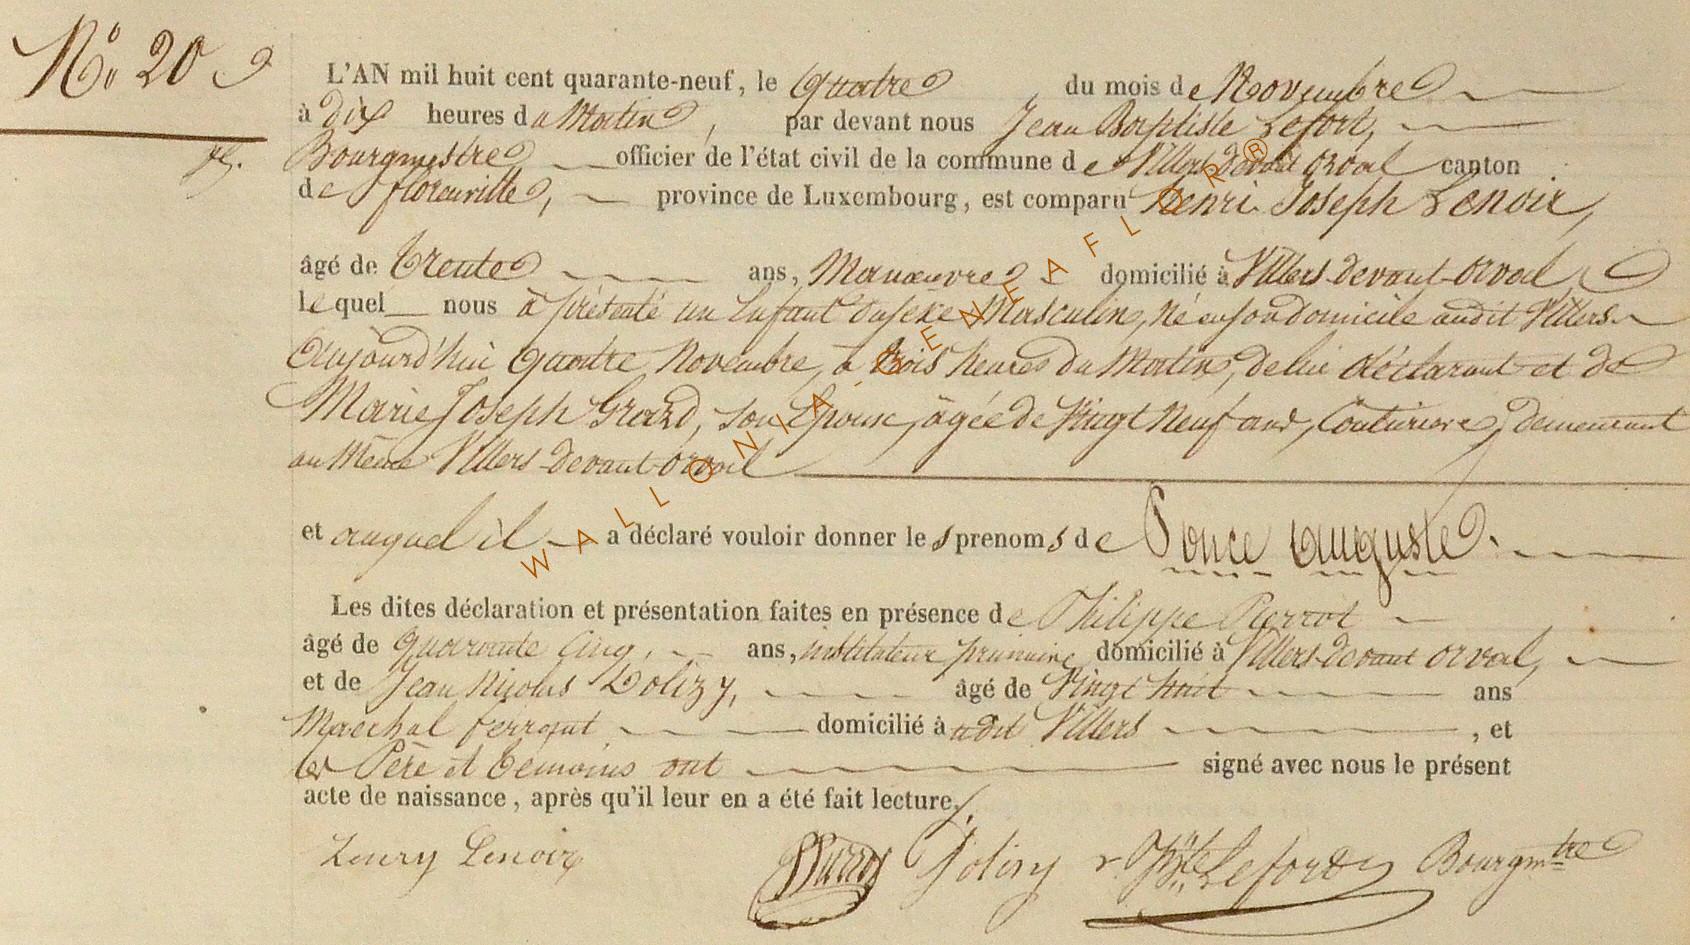 No 20
L'AN mil huit cent quarante-neuf, le quatre du mois de Novembre
à dix heures du Matin, par devant nous Jean Baptiste Lefort,
Bourgmestre officier de l'état civil de la commune de Villers devant orval canton
de florenville, province de Luxembourg, est comparu Henri Joseph Lenoir,
âgé de trente ans, Manœuvre domicilié à Villers-devant-orval
lequel nous à présenté un Enfant du sexe Masculin, né en son domicile audit Villers
Aujourd'hui quatre Novembre, à trois heures du Matin, de lui déclarant et de
Marie Joseph Grard, son Epouse, âgée de Vingt Neuf ans, Couturiere, demeurant
au Même Villers-devant-orval
et auquel il a déclaré vouloir donner les prenoms de Ponce Auguste.
Les dites déclaration et présentation faites en présence de Philippe Pierrot
âgé de quarante Cinq, ans, instituteur primaire domicilié à Villers-devant orval,
et de Jean Nicolas Dolizy, âgé de Vingt huit ans
Maréchal ferrant domicilié à udit Villers, et
les Père et témoins ont signé avec nous le présent
acte de naissance, après qu'il leur en a été fait lecture.
Henry Lenoir Pierrot Dolizy J Bte Lefort Bourgmtre
WALLONIA.GENEAFLOR®